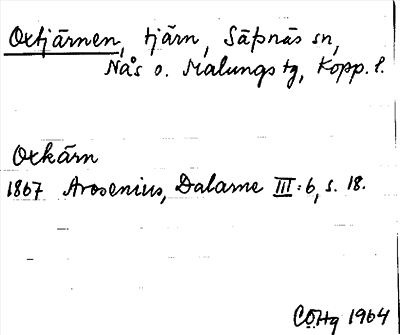 Oxtjärnen, tjärn, Säfsnäs sn,
Nås o. Malungs tg, Kopp. l.
Oxkärn
1867 Arosenius, Dalarne III: 6, s. 18.
CÖHg 1964